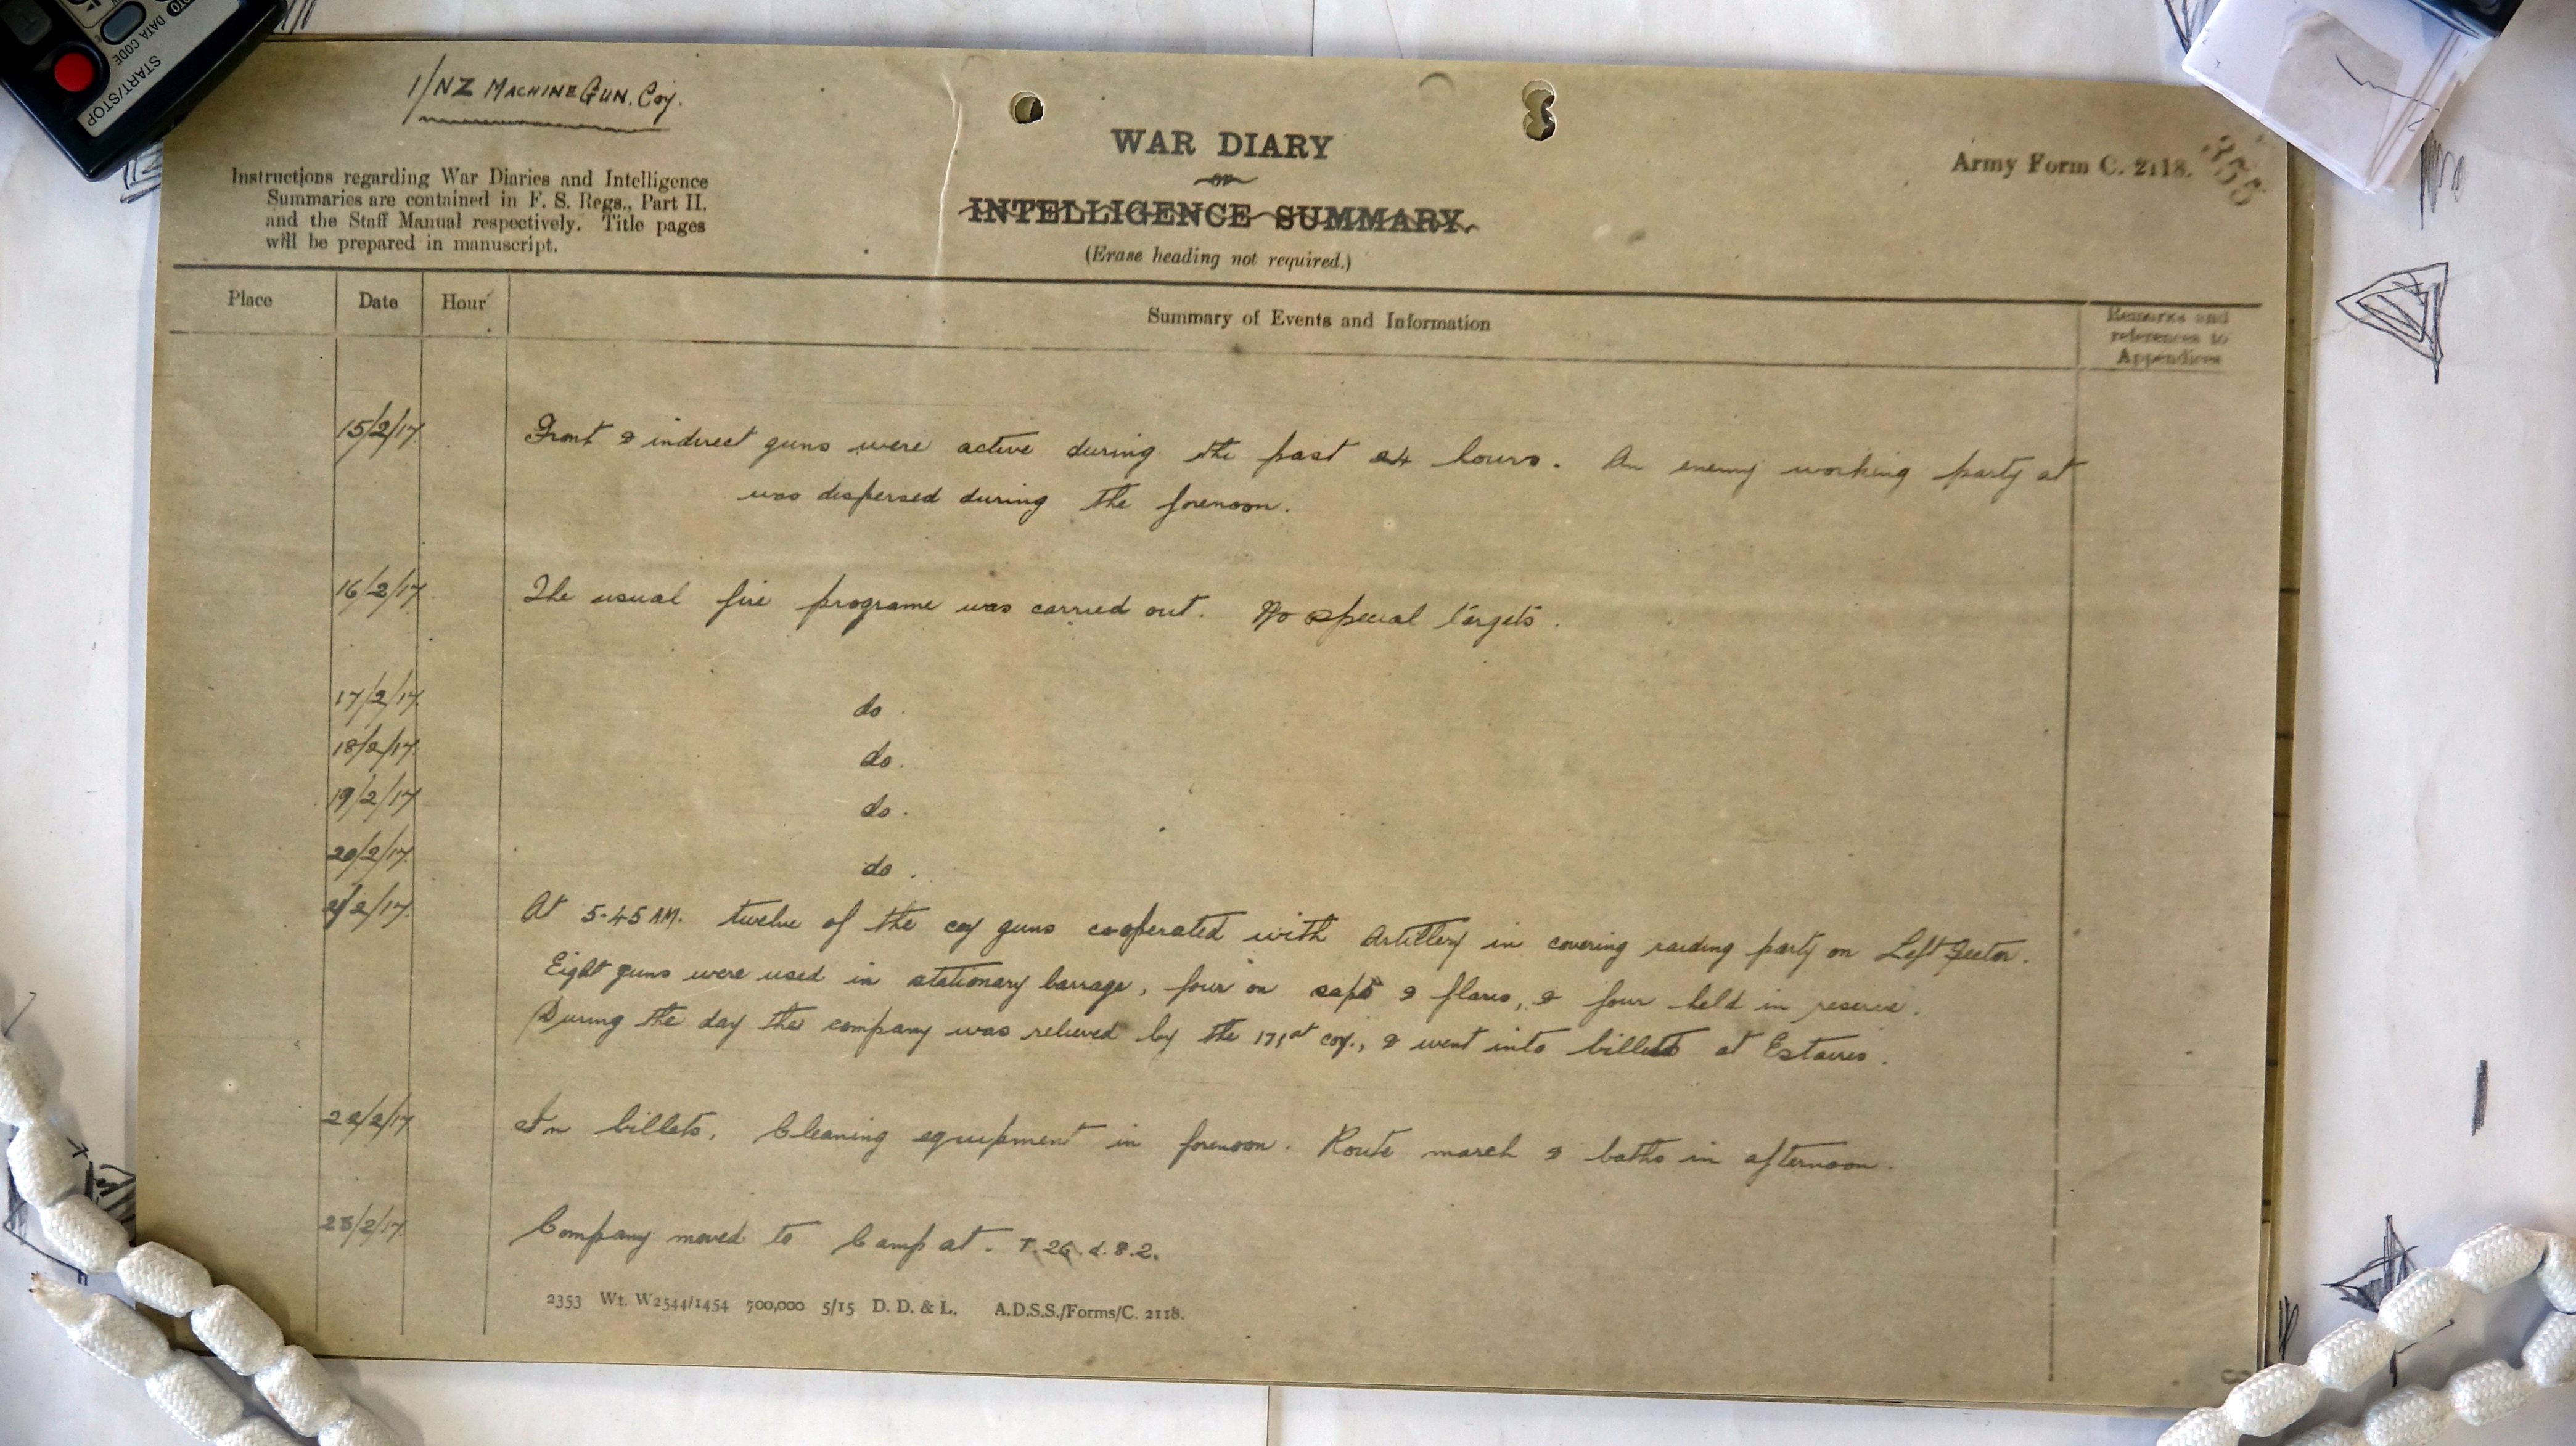 START/STOP
DATA CODE
1/NZ MACHINE GUN. Coy.
Instructions regarding War Diaries and Intelligence
Summaries are contained in F. S. Regs., Part II.
and the Staff Manual respectively. Title pages
will be prepared in manuscript.
WAR DIARY
or
INTELLIGENCE SUMMARY.
(Erase heading not required.)
Army Form C. 2118.
Place Date Hour Summary of Events and Information Remarks and
references to
Appendices
15/2/17 Front & indirect guns were active during the past 24 hours. An enemy working party at
was dispersed during the forenoon.
16/2/17 The usual fire programe was carried out. No special targets.
17/2/17 do.
18/2/17 do.
19/2/17 do.
20/2/17 do.
21/2/17 At 5-45 AM. twelve of the coy guns cooperated with Artillery in covering raiding party on Left Sector.
Eight guns were used in stationary barrage, four on saps & flares, & four held in reserve.
During the day the company was relieved by the 171st coy., & went into billets at Estaires.
22/2/17 In billets. Cleaning equipment in forenoon. Route march & baths in afternoon.
23/2/17 Company moved to Camp at. T.26.d.8.2.
2353 Wt. W2544/1454 700,000 5/15 D. D. & L. A.D.S.S./Forms/C. 2118.